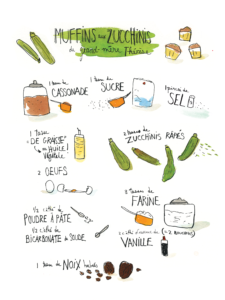 MUFFINS aux ZUCCHINIS
de grand-mère Thérèse
1 tasse de
CASSONADE
1 tasse de
SUCRE
1 pincée de
SEL
1 Tasse
"DE GRAISSE"
ou HUILE
Végétale
2 tasses de
ZUCCHINIS RÂPÉS
2 OEUFS
3 Tasses de
FARINE
1/2 c. à thé de
POUDRE À PÂTE
VANILLE
1/2 c. à thé de
BICARBONATE de SOUDE
1 tasse de NOIX hachées